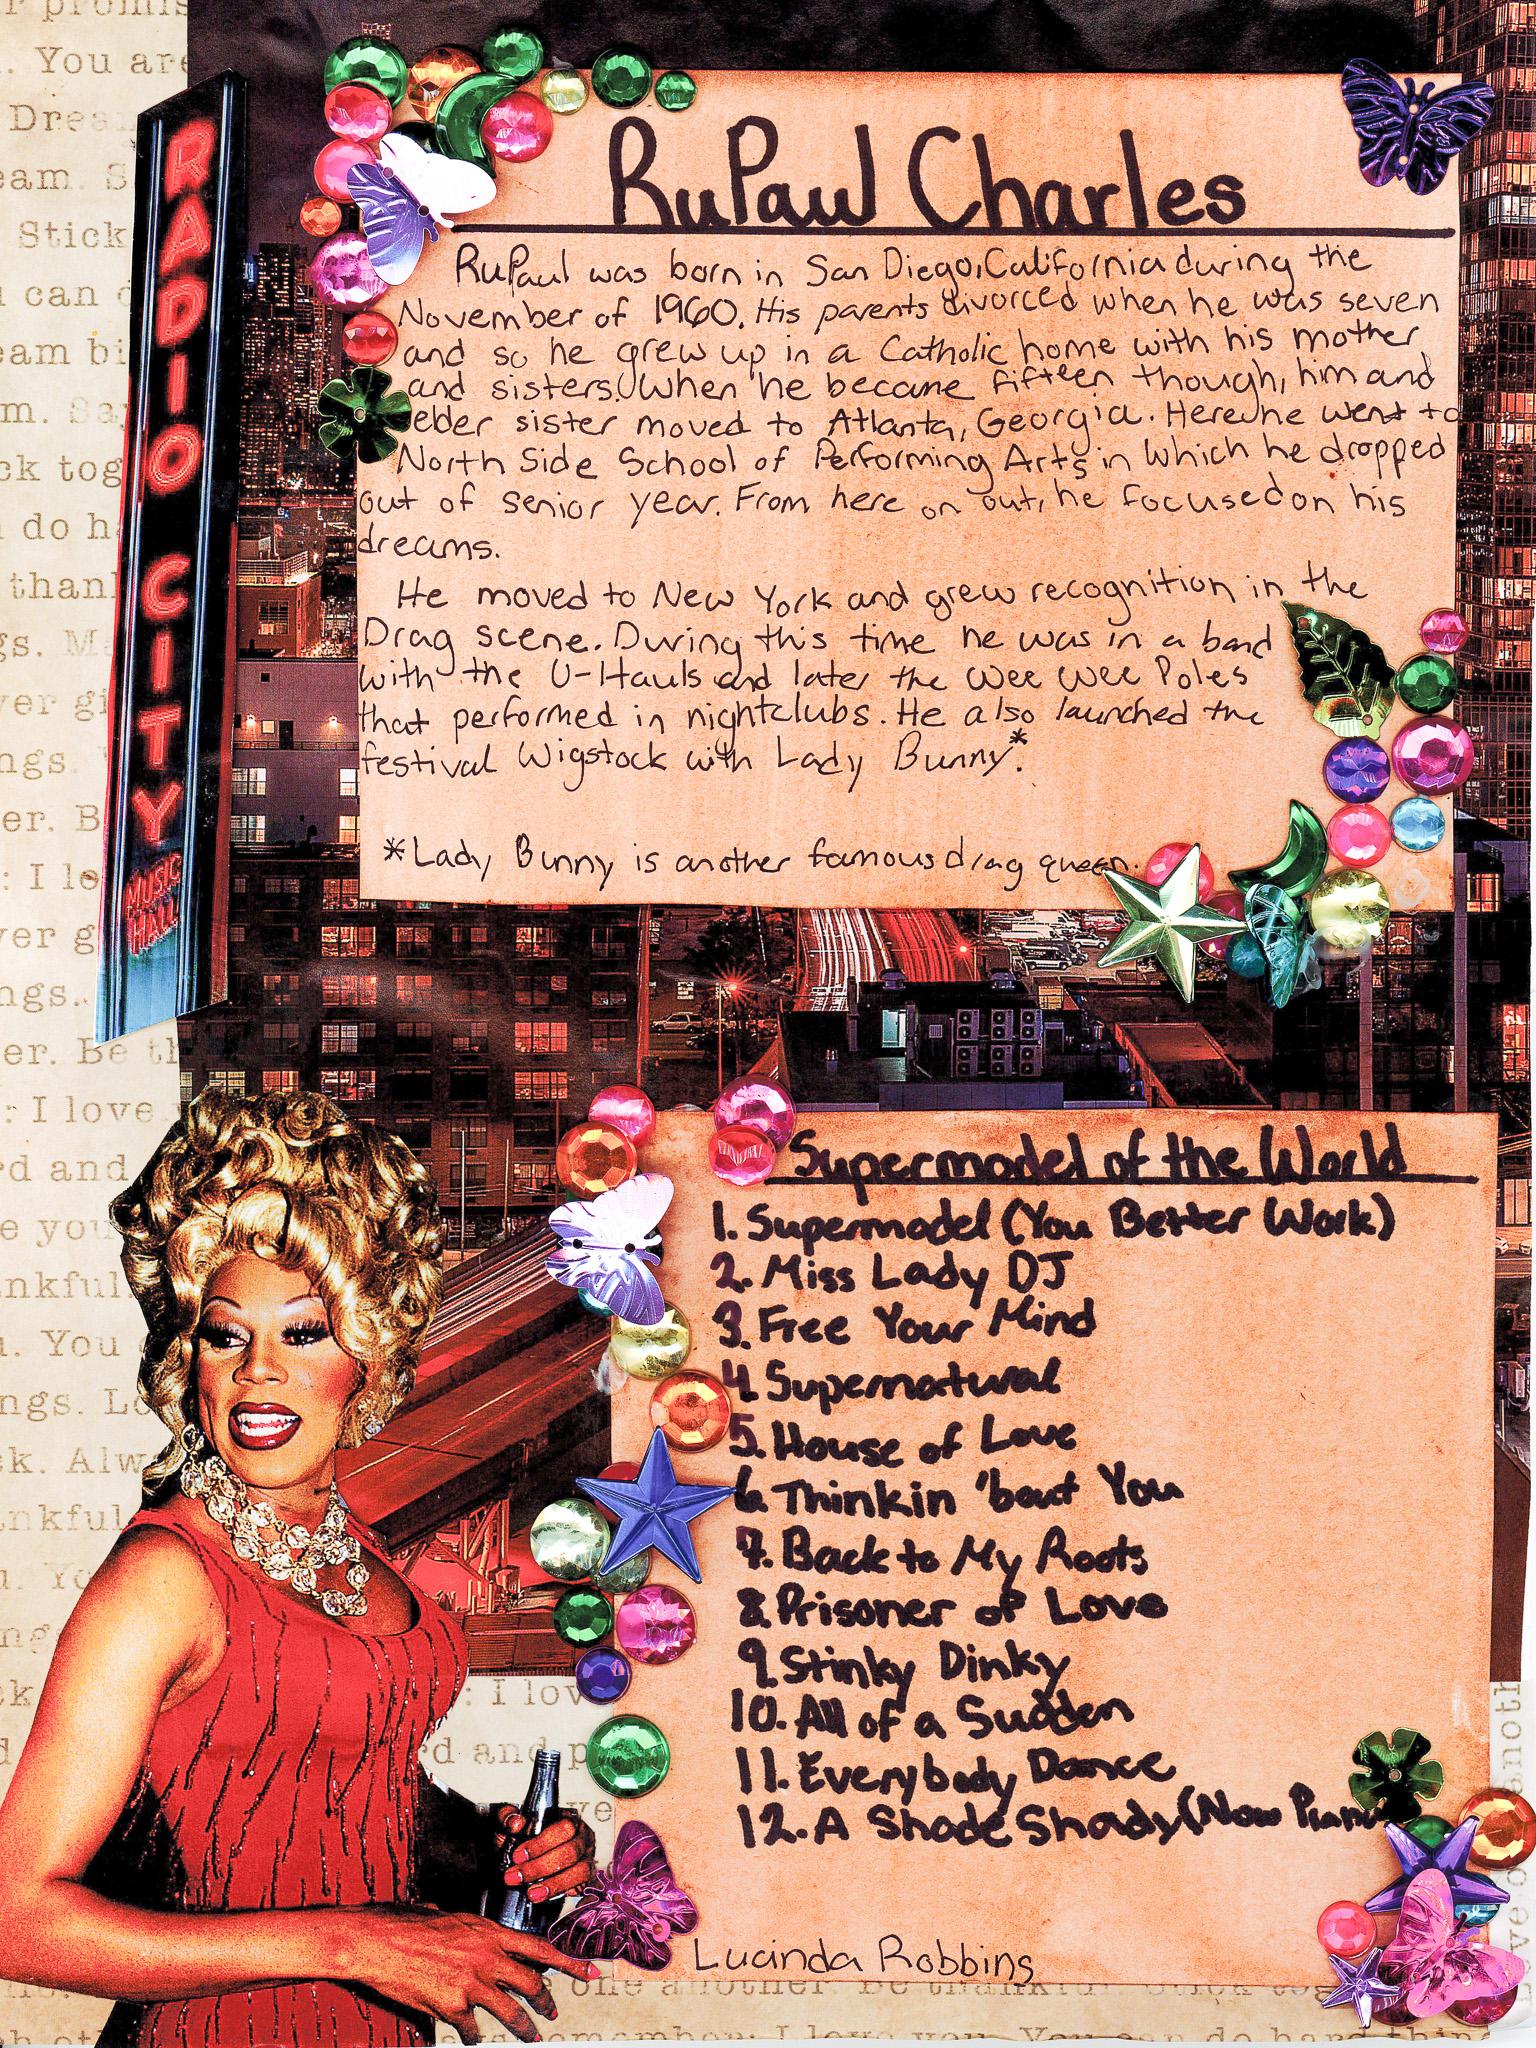 RADIO CITY
MUSIC
HALL
RuPaul Charles
RuPaul was born in San Diego, California during the
November of 1960. His parents divorced when he was seven
and so he grew up in a Catholic home with his mother
and sisters. When he became fifteen though, him and
elder sister moved to Atlanta, Georgia. Here he went to
North Side School of Performing Arts in which he dropped
out of senior year. From here on out, he focused on his
dreams.
He moved to New York and grew recognition in the
Drag scene. During this time he was in a band
with the U-Hauls and later the Wee Wee Poles
that performed in nightclubs. He also launched the
festival Wigstock with Lady Bunny*.
*Lady Bunny is another famous drag queen.
Supermodel of the World
1. Supermodel (You Better Work)
2. Miss Lady DJ
3. Free Your Mind
4. Supernatural
5. House of Love
6. Thinkin 'bout You
7. Back to My Roots
8. Prisoner of Love
9. Stinky Dinky
10. All of a Sudden
11. Everybody Dance
12. A Shade Shady (Now
Lucinda Robbins